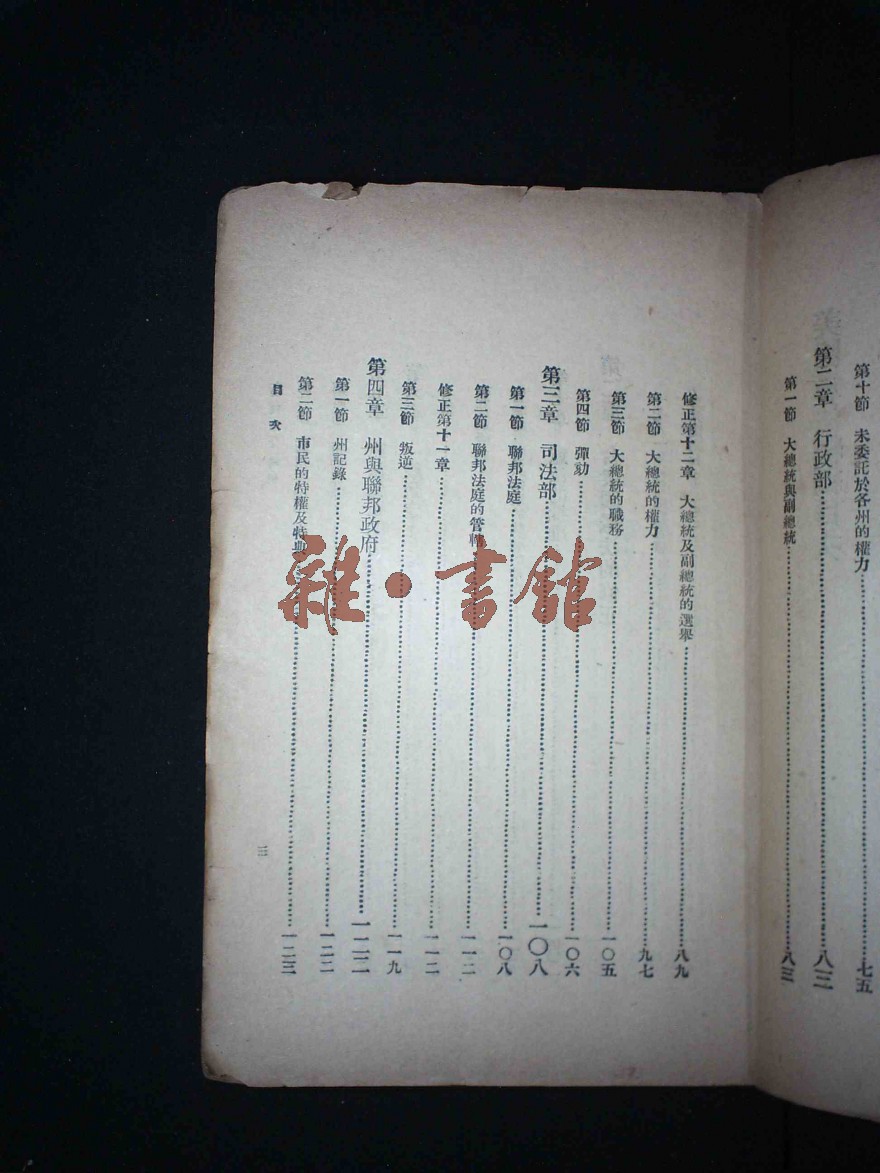 第十節　未委託於各州的權力……七五
第二章　行政部……八三
第一節　大總統與副總統……八三
修正第十二章　大總統及副總統的選舉……八九
第二節　大總統的權力……九七
第三節　大總統的職務……一〇五
第四節　彈劾……一〇六
第三章　司法部……一〇八
第一節　聯邦法庭……一〇八
第二節　聯邦法庭的管轄……一一二
修正第十一章……一一二
第三節　叛逆……一一九
第四章　州與聯邦政府……一二二
第一節　州記錄……一二二
第二節　市民的特權及特典……一二三
目次
三
雜·書館